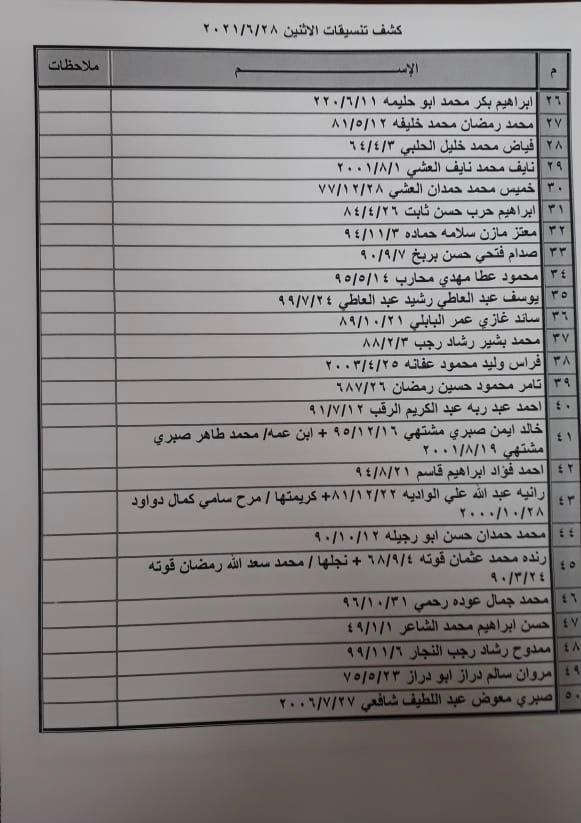 كشف تنسيقات الاثنين ٢٠٢١/٦/٢٨
م الإســـــم ملاحظات
٢٦ ابراهيم بكر محمد ابو حليمه ٢٢٠/٦/١١
٢٧ محمد رمضان محمد خليفه ٨١/٥/١٢
٢٨ فياض محمد خليل الحلبي ٦٤/٤/٣
٢٩ نايف محمد نايف العشي ٢٠٠١/٨/١
٣٠ خميس محمد حمدان العشي ٧٧/١٢/٢٨
٣١ ابراهيم حرب حسن ثابت ٨٤/٤/٢٦
٣٢ معتز مازن سلامه حماده ٩٤/١١/٣
٣٣ صدام فتحي حسن بربخ ٩٠/٩/٧
٣٤ محمود عطا مهدي محارب ٩٥/٥/١٤
٣٥ يوسف عبد العاطي رشيد عبد العاطي ٩٩/٧/٢٤
٣٦ سائد غازي عمر البابلي ٨٩/١٠/٢١
٣٧ محمد بشير رشاد رجب ٨٨/٢/٣
٣٨ فراس وليد محمود عفانه ٢٠٠٣/٤/٢٥
٣٩ تامر محمود حسين رمضان ٦٨٧/٢٦
٤٠ احمد عبد ربه عبد الكريم الرقب ٩١/٧/١٢
٤١ خالد ايمن صبري مشتهي ٩٥/١٢/١٦ + ابن عمه/ محمد طاهر صبري
مشتهي ٢٠٠١/٨/١٩
٤٢ احمد فؤاد ابراهيم قاسم ٩٤/٨/٢١
٤٣ رانيه عبد الله علي الواديه ٨١/١٢/٢٢+ كريمتها / مرح سامي كمال دواود
٢٠٠٠/١٠/٢٨
٤٤ محمد حمدان حسن ابو رجيله ٩٠/١٠/١٢
٤٥ رنده محمد عثمان قوته ٦٨/٩/٤ + نجلها / محمد سعد الله رمضان قوته
٩٠/٣/٢٤
٤٦ محمد جمال عوده رحمي ٩٦/١٠/٣١
٤٧ حسن ابراهيم محمد الشاعر ٤٩/١/١
٤٨ ممدوح رشاد رجب النجار ٩٩/١١/٦
٤٩ مروان سالم دراز ابو دراز ٧٥/٥/٢٣
٥٠ صبري معوض عبد اللطيف شافعي ٢٠٠٦/٧/٢٧